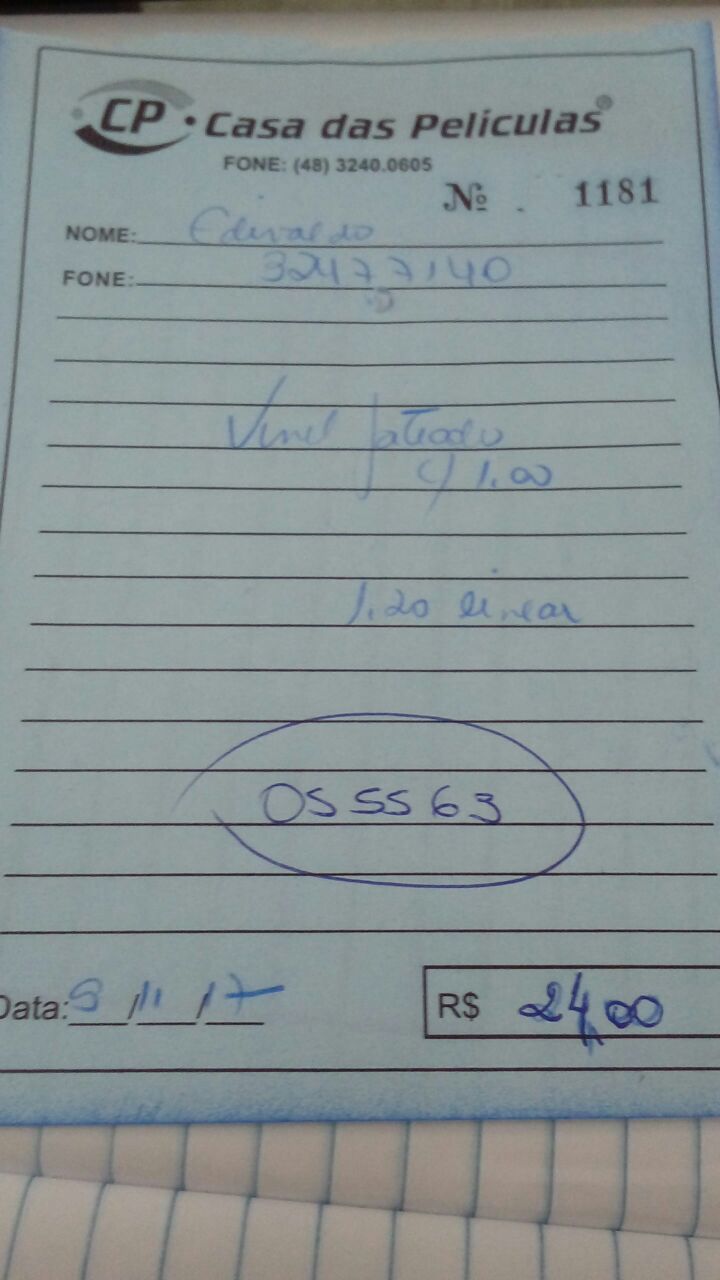 CP . Casa das Películas®
FONE: (48) 3240.0605
Nº . 1181
NOME: Edivaldo
FONE: 32477140
Vinil Jateado
c/ 1.00
1.20 linear
OS 5563
Data: 9/11/17
R$ 24,00